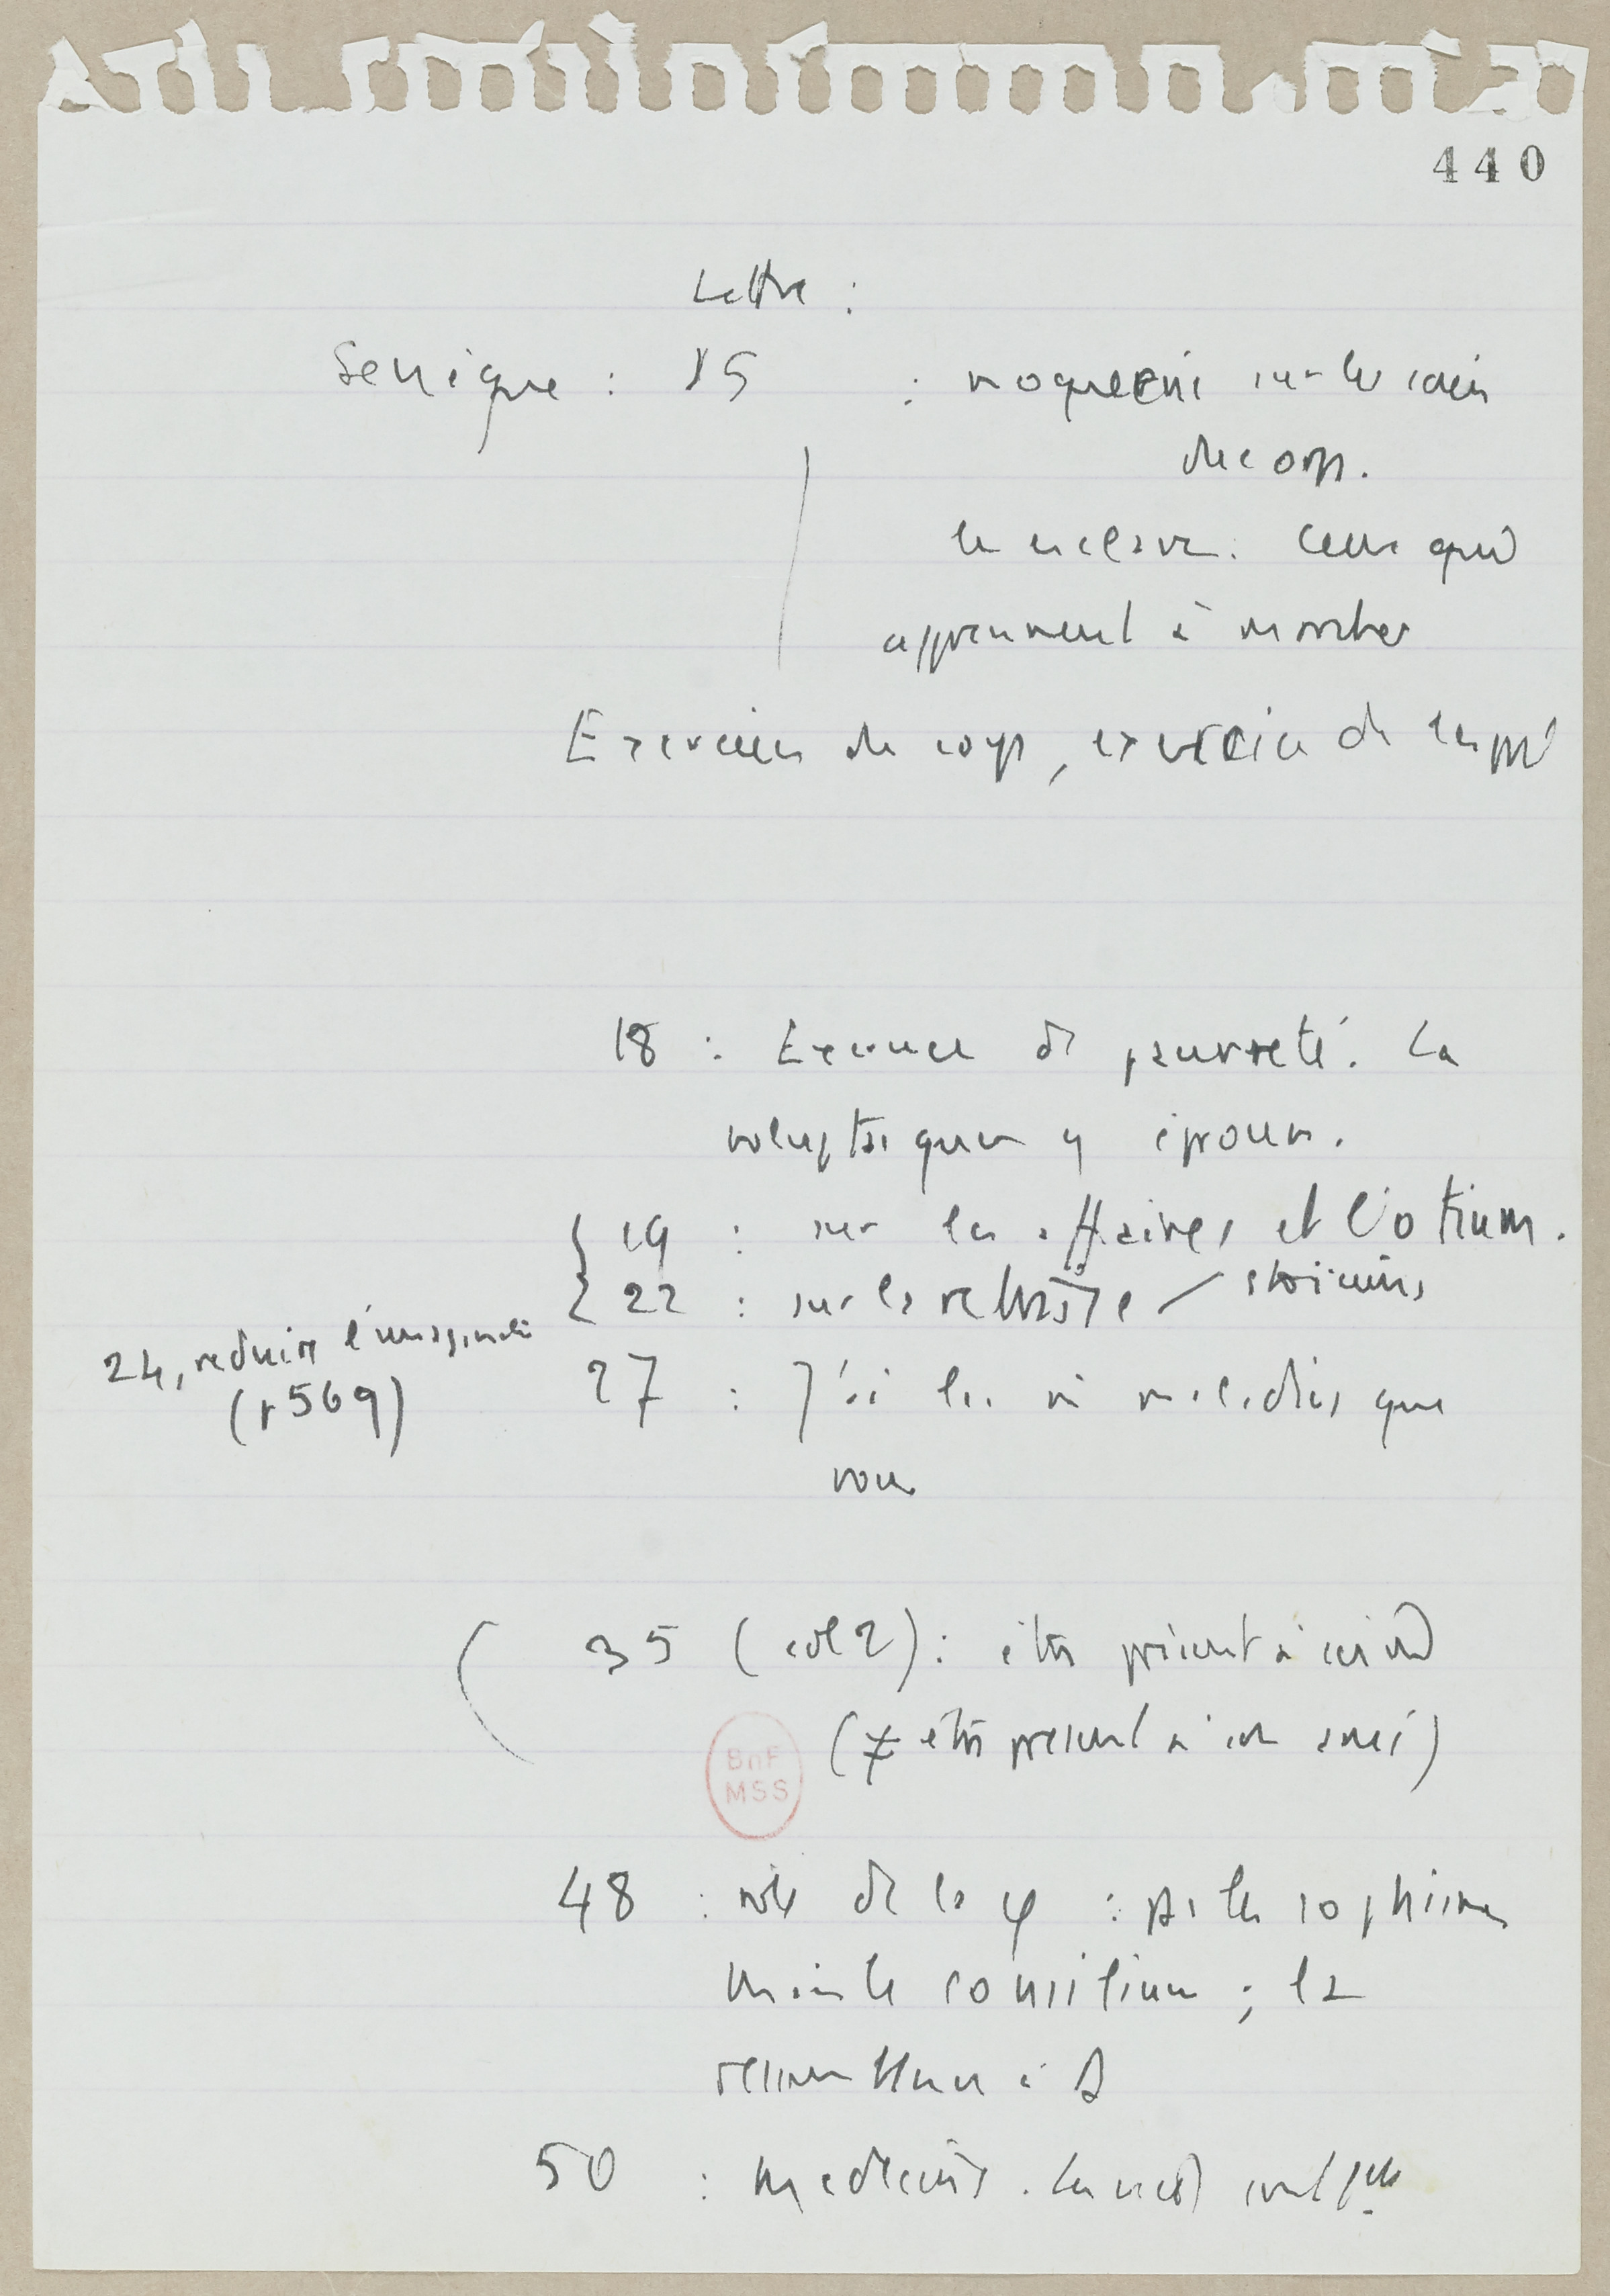 440
Lettre :
Sénèque : 15 : moquerie sur les soins
du corps.
les esclaves. Ceux qui
apprennent à marcher
Exercices du corps, exercice de l'esprit
18 : Exercice de pauvreté. La
volupté qu'on y éprouve.
19 : sur les affaires et l'otium.
22 : sur la retraite / stoiciens
24, réduire l'imagination
(p 569)
27 : J'ai les m maladies que
vous
35 (col 2) : être présent à
(≠ être présent à son ami)
48 : rôle de la φ : pas les sophismes
mais le consilium ; la
à
50 : médecins. Les sont
BnF
MSS